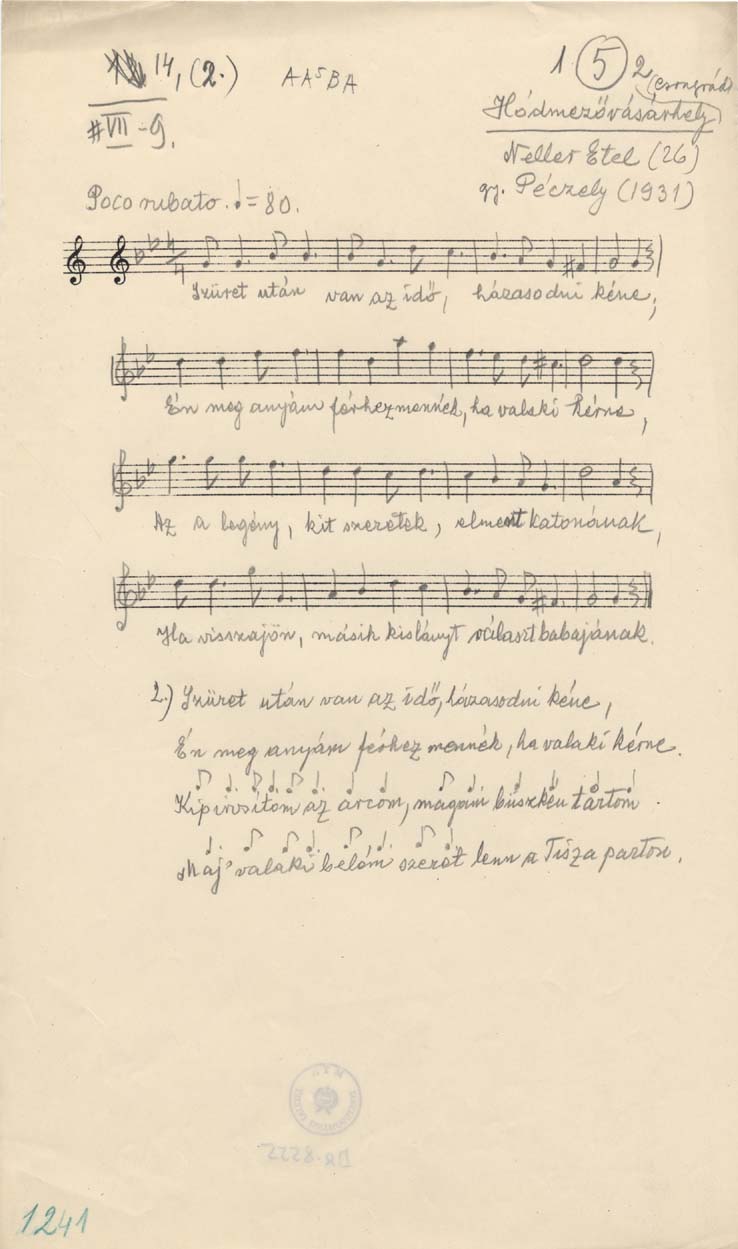 14, (2.) AA⁵BA 1 (5) 2
#VII-9. (Csongrád)
Hódmezővásárhely
Neller Etel (26)
gy. Péczely (1931)
Poco rubato. ♩=80.
Szüret után van az idő, házasodni kéne,
Én meg anyám férhezmennék, ha valaki kérne,
Az a legény, kit szeretek, elment katonának,
Ha visszajön, másik kislányt választ babajának.
2.) Szüret után van az idő, házasodni kéne,
Én meg anyám férhez mennék, ha valaki kérne.
Kipirosítom az arcom, magam büszkén tartom.
Maj' valaki belém szeret lenn a Tisza parton.
1241